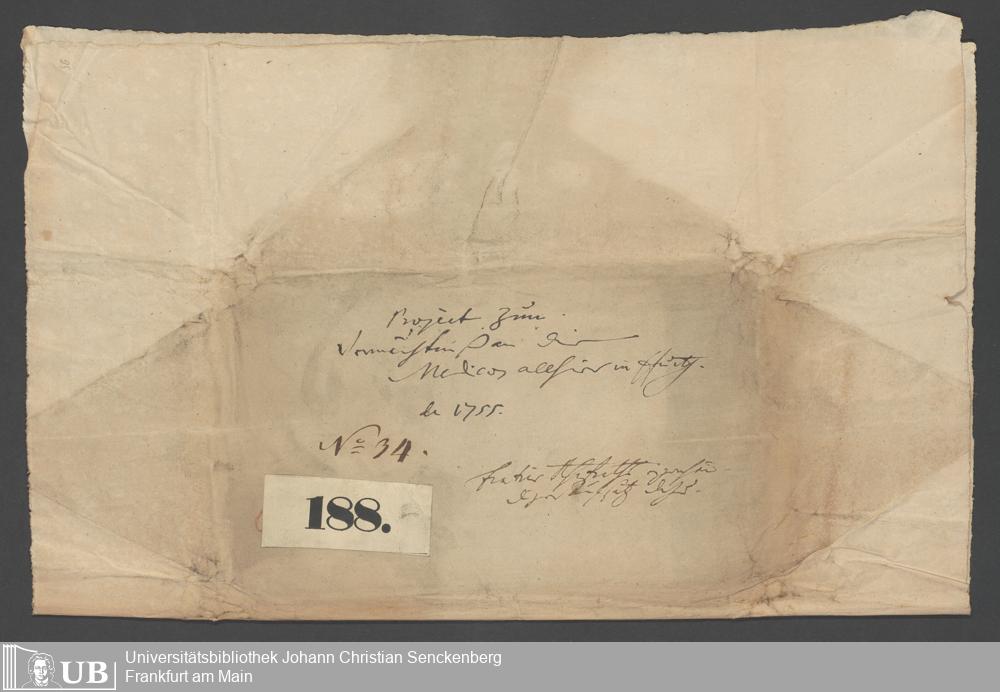 Project zum
Vermächtniß an die
Medicos allhier in
de 1755.
No 34.
188.
UB
Universitätsbibliothek Johann Christian Senckenberg
Frankfurt am Main